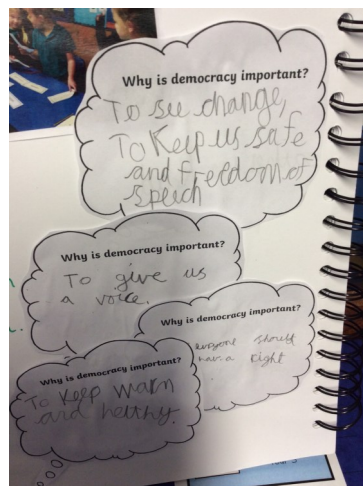 Why is democracy important?
To see change,
To Keep us safe
and freedom of
speich
Why is democracy important?
To give us
a voice.
Why is democracy important?
everyone should
hav a right
Why is democracy important?
To Keep warm
and helthy.